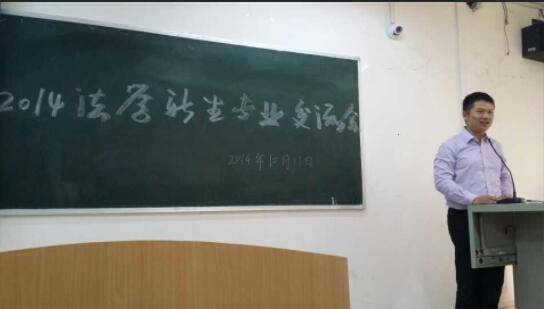 2014法学新生专业交流会
2014年10月17日